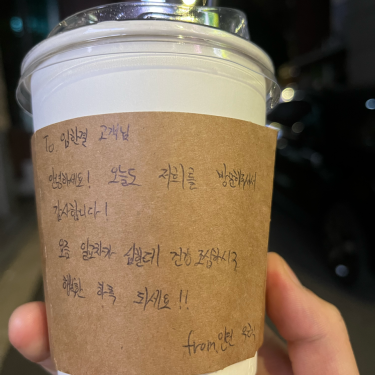 To. 임한결 고객님
안녕하세요! 오늘도 저희를 방문해주셔서
감사합니다!
요즘 일교차가 심한데 건강 조심하시고
행복한 하루 되세요!!
from.